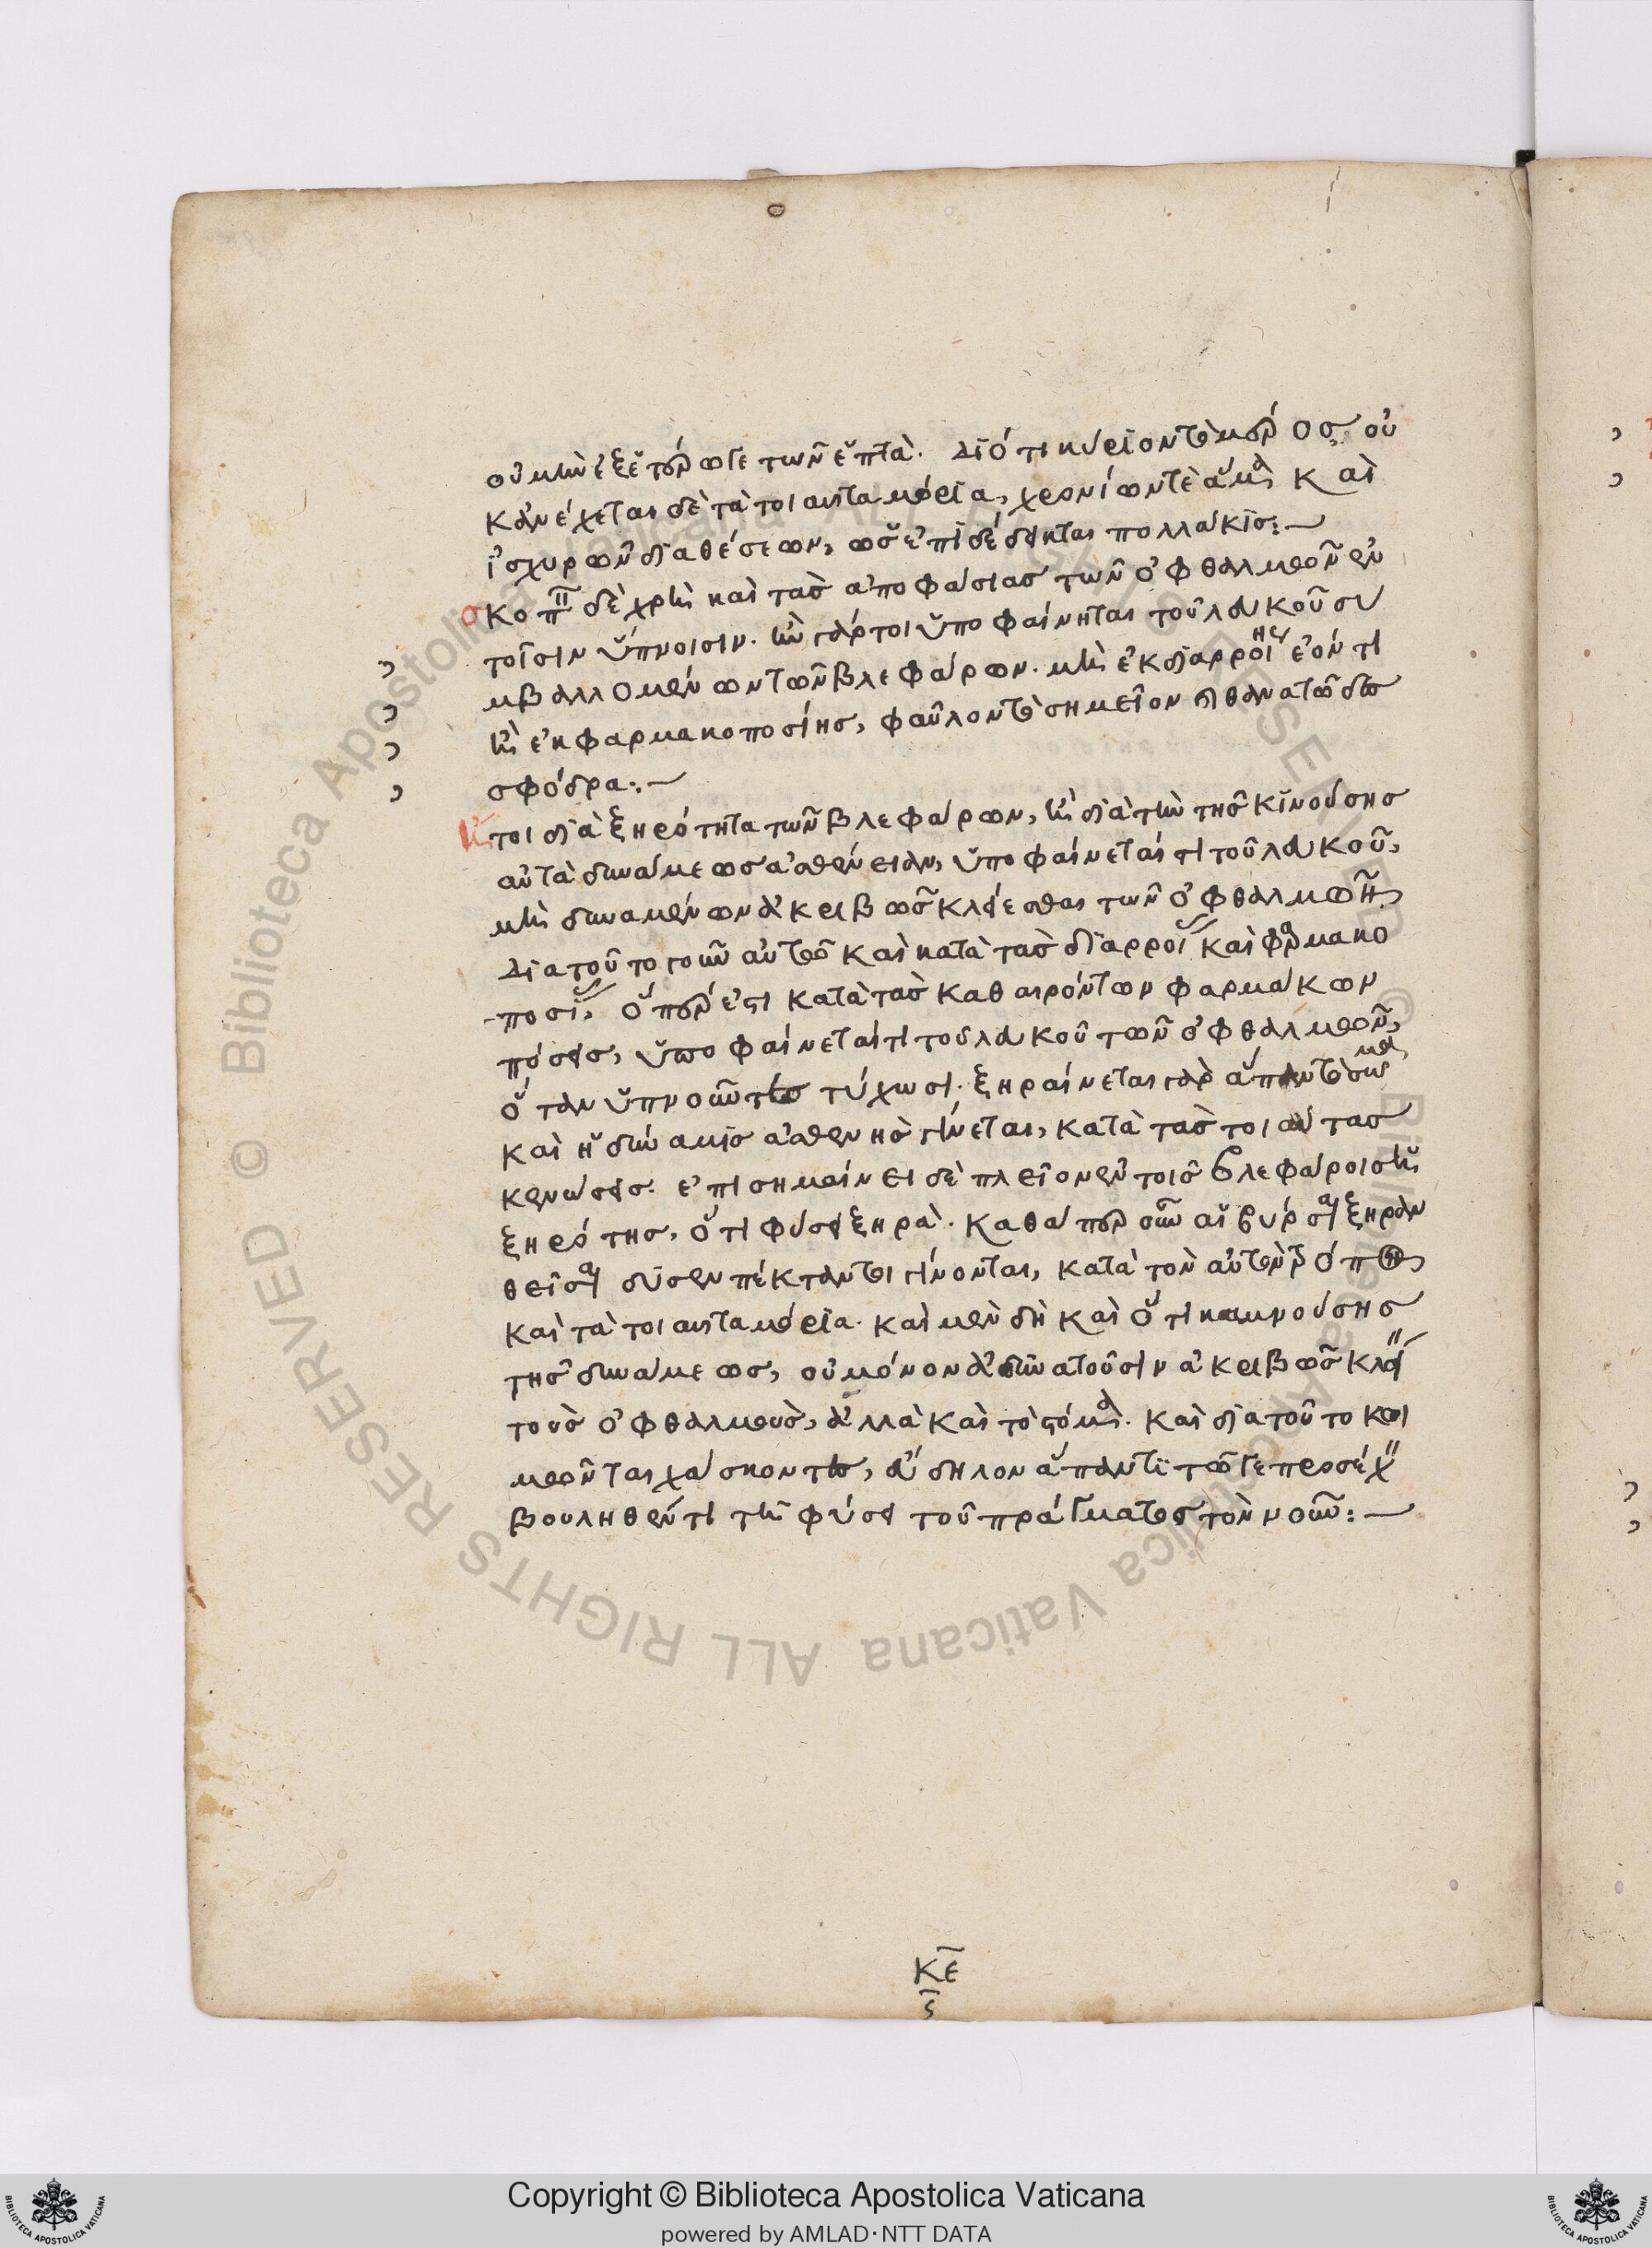 οὐ μὴν ἐξ ἑτέρω γε τῶν ἑπτά. διότι κύριόν τε μέρος οὐ
κ ἀνέχεται δὲ τὰ τοιαῦτα μόρια, χρονίων τε ἅμα καὶ
ἰσχυρῶν διαθέσεων, ὡς ἐπιδέδεικται πολλάκις:—
σκοπ δὲ χρὴ καὶ τὰς ἀποφάσιας τῶν ὀφθαλμῶν ἐν
τοῖσιν ὕπνοισιν. ἢν γάρ τοι ὑποφαίνηται τοῦ λευκοῦ συ
μβαλλομένων τῶν βλεφάρων. μὴ ἐκ διαρροίης ἐόντι
ἢ ἐκ φαρμακοποσίης, φαῦλον τὸ σημεῖον καὶ θανατῶδες
σφόδρα:—
ἤτοι διὰ ξηρότητα τῶν βλεφάρων, ἢ διὰ τὴν τῆς κινούσης
αὐτὰ δυνάμεως ἀσθένειαν, ὑποφαίνεταί τι τοῦ λευκοῦ,
μὴ δυναμένων ἀκριβῶς κλείεσθαι τῶν ὀφθαλμῶν,
διὰ τοῦτο γοῦν αὐτὸ καὶ κατὰ τὰς διαρροίας καὶ φαρμακο
ποσίας, ὅπερ ἐστὶ κατὰ τὰς καθαιρόντων φαρμάκων
πόσεις, ὑποφαίνεταί τι τοῦ λευκοῦ τῶν ὀφθαλμῶν,
ὅταν ὑπνοῦντες τύχωσι. ξηραίνεται γὰρ ἅπαν τὸ σῶμα
καὶ ἡ δύναμις ἀσθενὴς γίνεται, κατὰ τὰς τοιαύτας
κενώσεις. ἐπισημαίνει δὲ πλεῖον ἐν τοῖς βλεφάροις ἡ
ξηρότης, ὅτι φύσει ξηρά. καθάπερ οὖν αἱ βύρσαι ξηραν
θεῖσαι δύσεν πέκταντοι γίνονται, κατὰ τὸν αὐτὸν τρόπον,
καὶ τὰ τοιαῦτα μόρια. καὶ μὲν δὴ καὶ ὅτι καμνούσης
τῆς δυνάμεως, οὐ μόνον ἀδυνατοῦσιν ἀκριβῶς κλείειν
τοὺς ὀφθαλμοὺς, ἀλλὰ καὶ τὸ στόμα. καὶ διὰ τοῦτο κοι
μῶνται χάσκοντες, εὔδηλον ἅπαντι τῶ γε προσέχειν
βουληθέντι τῆ φύσει τοῦ πράγματος τὸν νοῦν:—
κε
ς
Copyright © Biblioteca Apostolica Vaticana
powered by AMLAD·NTT DATA
© Biblioteca Apostolica Vaticana ALL RIGHTS RESERVED
© Biblioteca Apostolica Vaticana ALL RIGHTS RESERVED